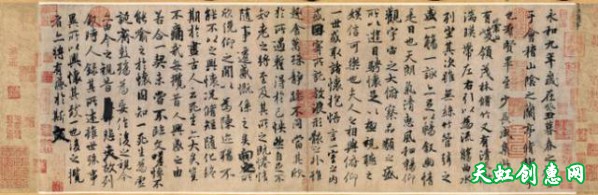 永和九年歲在癸丑暮春之初會
于會稽山陰之蘭亭脩稧事
也群賢畢至少長咸集此地
有崇山峻領茂林脩竹又有清流激
湍暎帶左右引以為流觴曲水
列坐其次雖無絲竹管弦之
盛一觴一詠亦足以暢敘幽情
是日也天朗氣清惠風和暢仰
觀宇宙之大俯察品類之盛
所以遊目騁懷足以極視聽之
娛信可樂也夫人之相與俯仰
一世或取諸懷抱悟言一室之內
或因寄所託放浪形骸之外雖
趣舍萬殊靜躁不同當其欣
於所遇蹔得於己怏然自足不
知老之將至及其所之既惓情
隨事遷感慨係之矣向之所
欣俛仰之閒以為陳迹猶不
能不以之興懷況脩短隨化終
期於盡古人云死生亦大矣豈
不痛哉每攬昔人興感之由
若合一契未嘗不臨文嗟悼不
能喻之於懷固知一死生為虛
誕齊彭殤為妄作後之視今
亦由今之視昔悲夫故列
敘時人錄其所述雖世殊事
異所以興懷其致一也後之攬
者亦將有感於斯文
天虹创意网